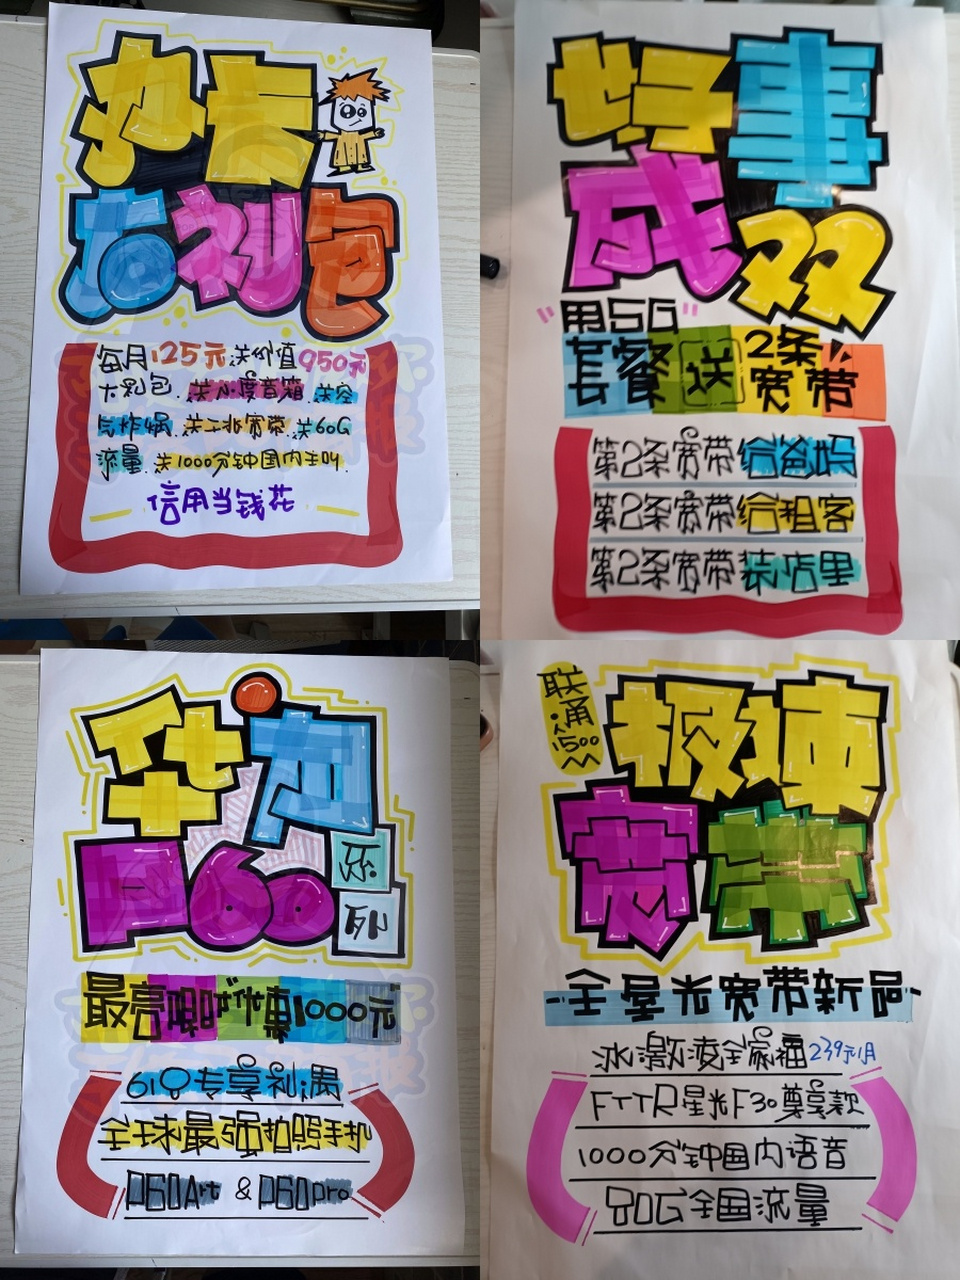 办卡
有礼包
每月125元送价值950元
大礼包.送小度音箱.送空
气炸锅.送二兆宽带.送60G
流量.送1000分钟国内主叫.
信用当钱花
好事
成双
"用5G"
套餐送2条宽带!
第2条宽带给爸妈
第2条宽带给租客
第2条宽带装店里
华为
P60系列
1000元
618专享礼遇
全球最强拍照手机
P60Art & P60pro
联通1500M
极速
宽带
-全屋光宽带新品-
冰激凌全家福239元/月
FTTR星光F30尊享款
1000分钟国内语音
80G全国流量